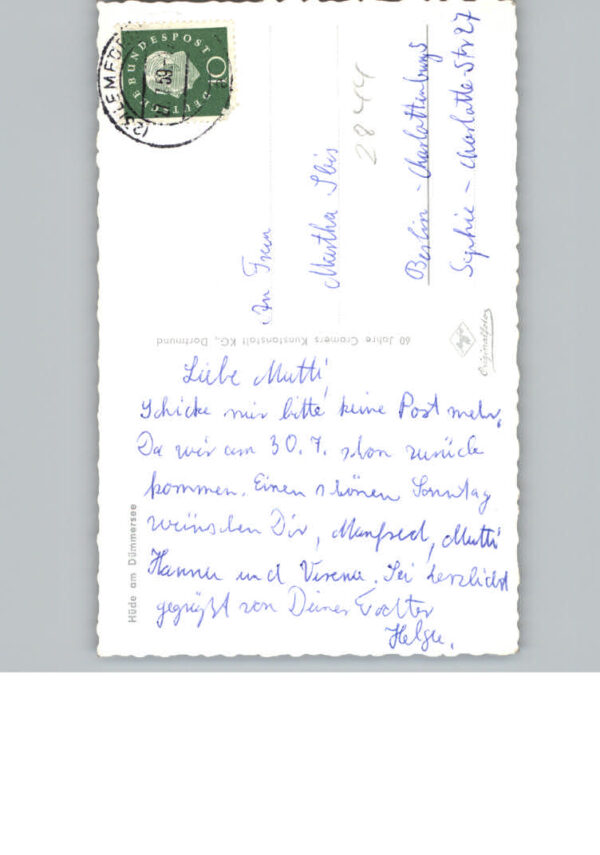 DEUTSCHE BUNDESPOST
10
(23) LEMFÖ
59
An Frau
Martha Ibis
Berlin - Charlottenburg
Sophie - Charlotte Str 27
2844
60 Jahre Cramers Kunstanstalt KG., Dortmund
Agfa
Originalfoto
Hüde am Dümmersee
Liebe Mutti,
Schicke mir bitte keine Post mehr,
Da wir am 30.7. schon zurück
kommen. Einen schönen Sonntag
wünschen Dir, Manfred, Mutti
Hanna und Verena. Sei herzlichst
gegrüßt von Deiner Tochter
Helga.